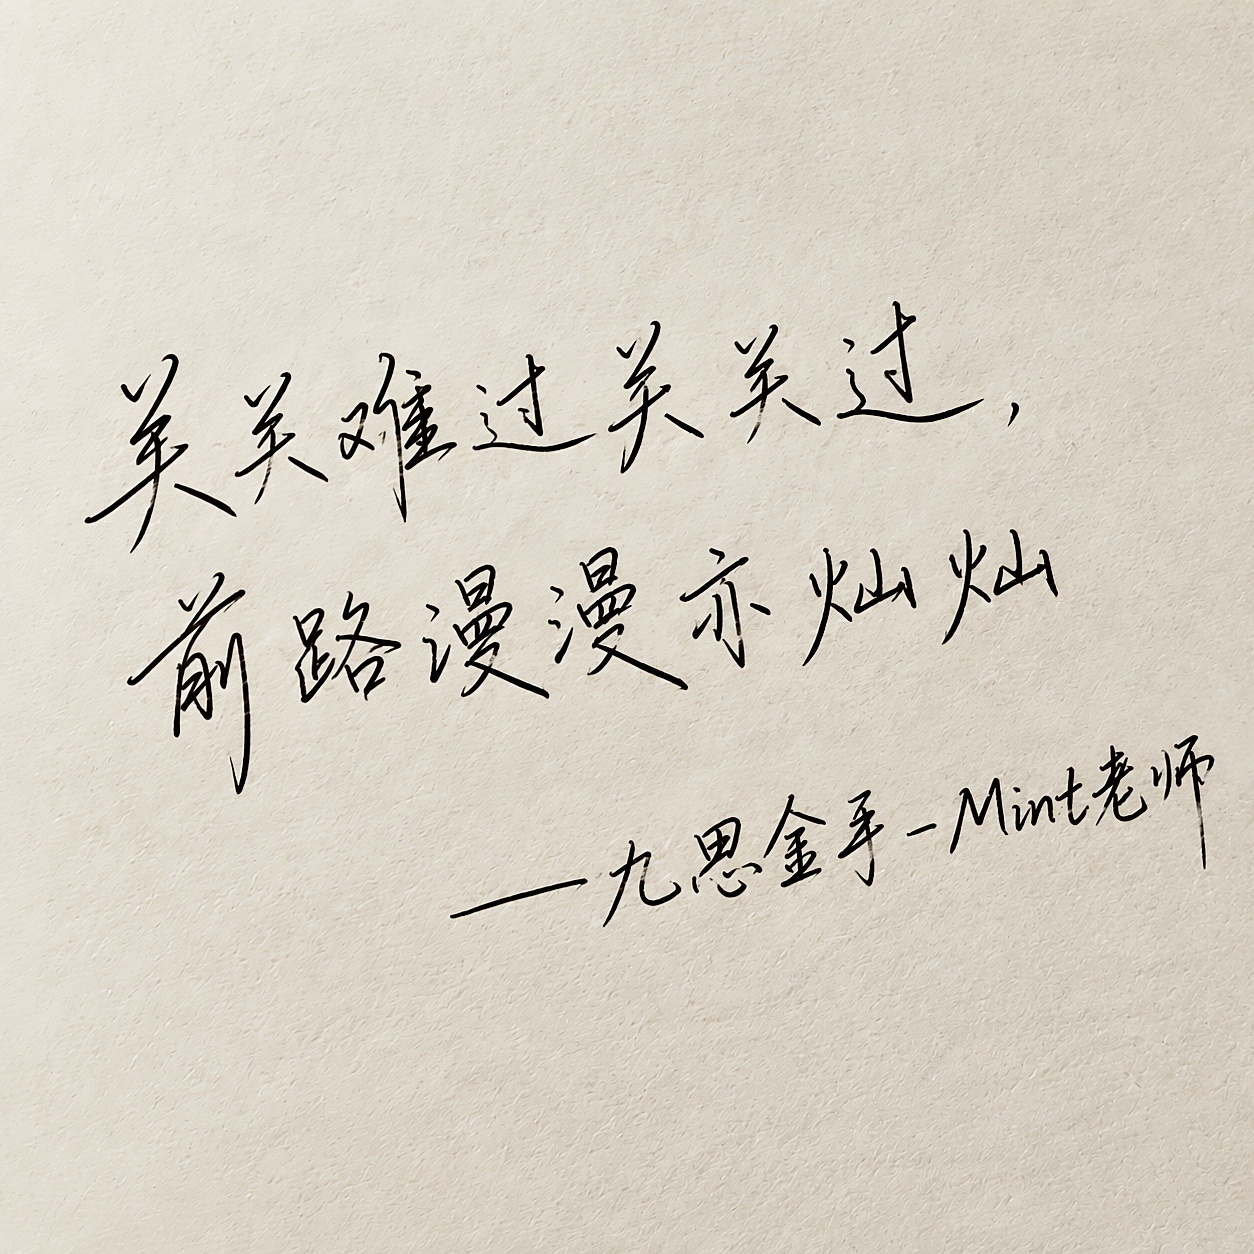 关关难过关关过，
前路漫漫亦灿灿
——九思金手-Mint老师